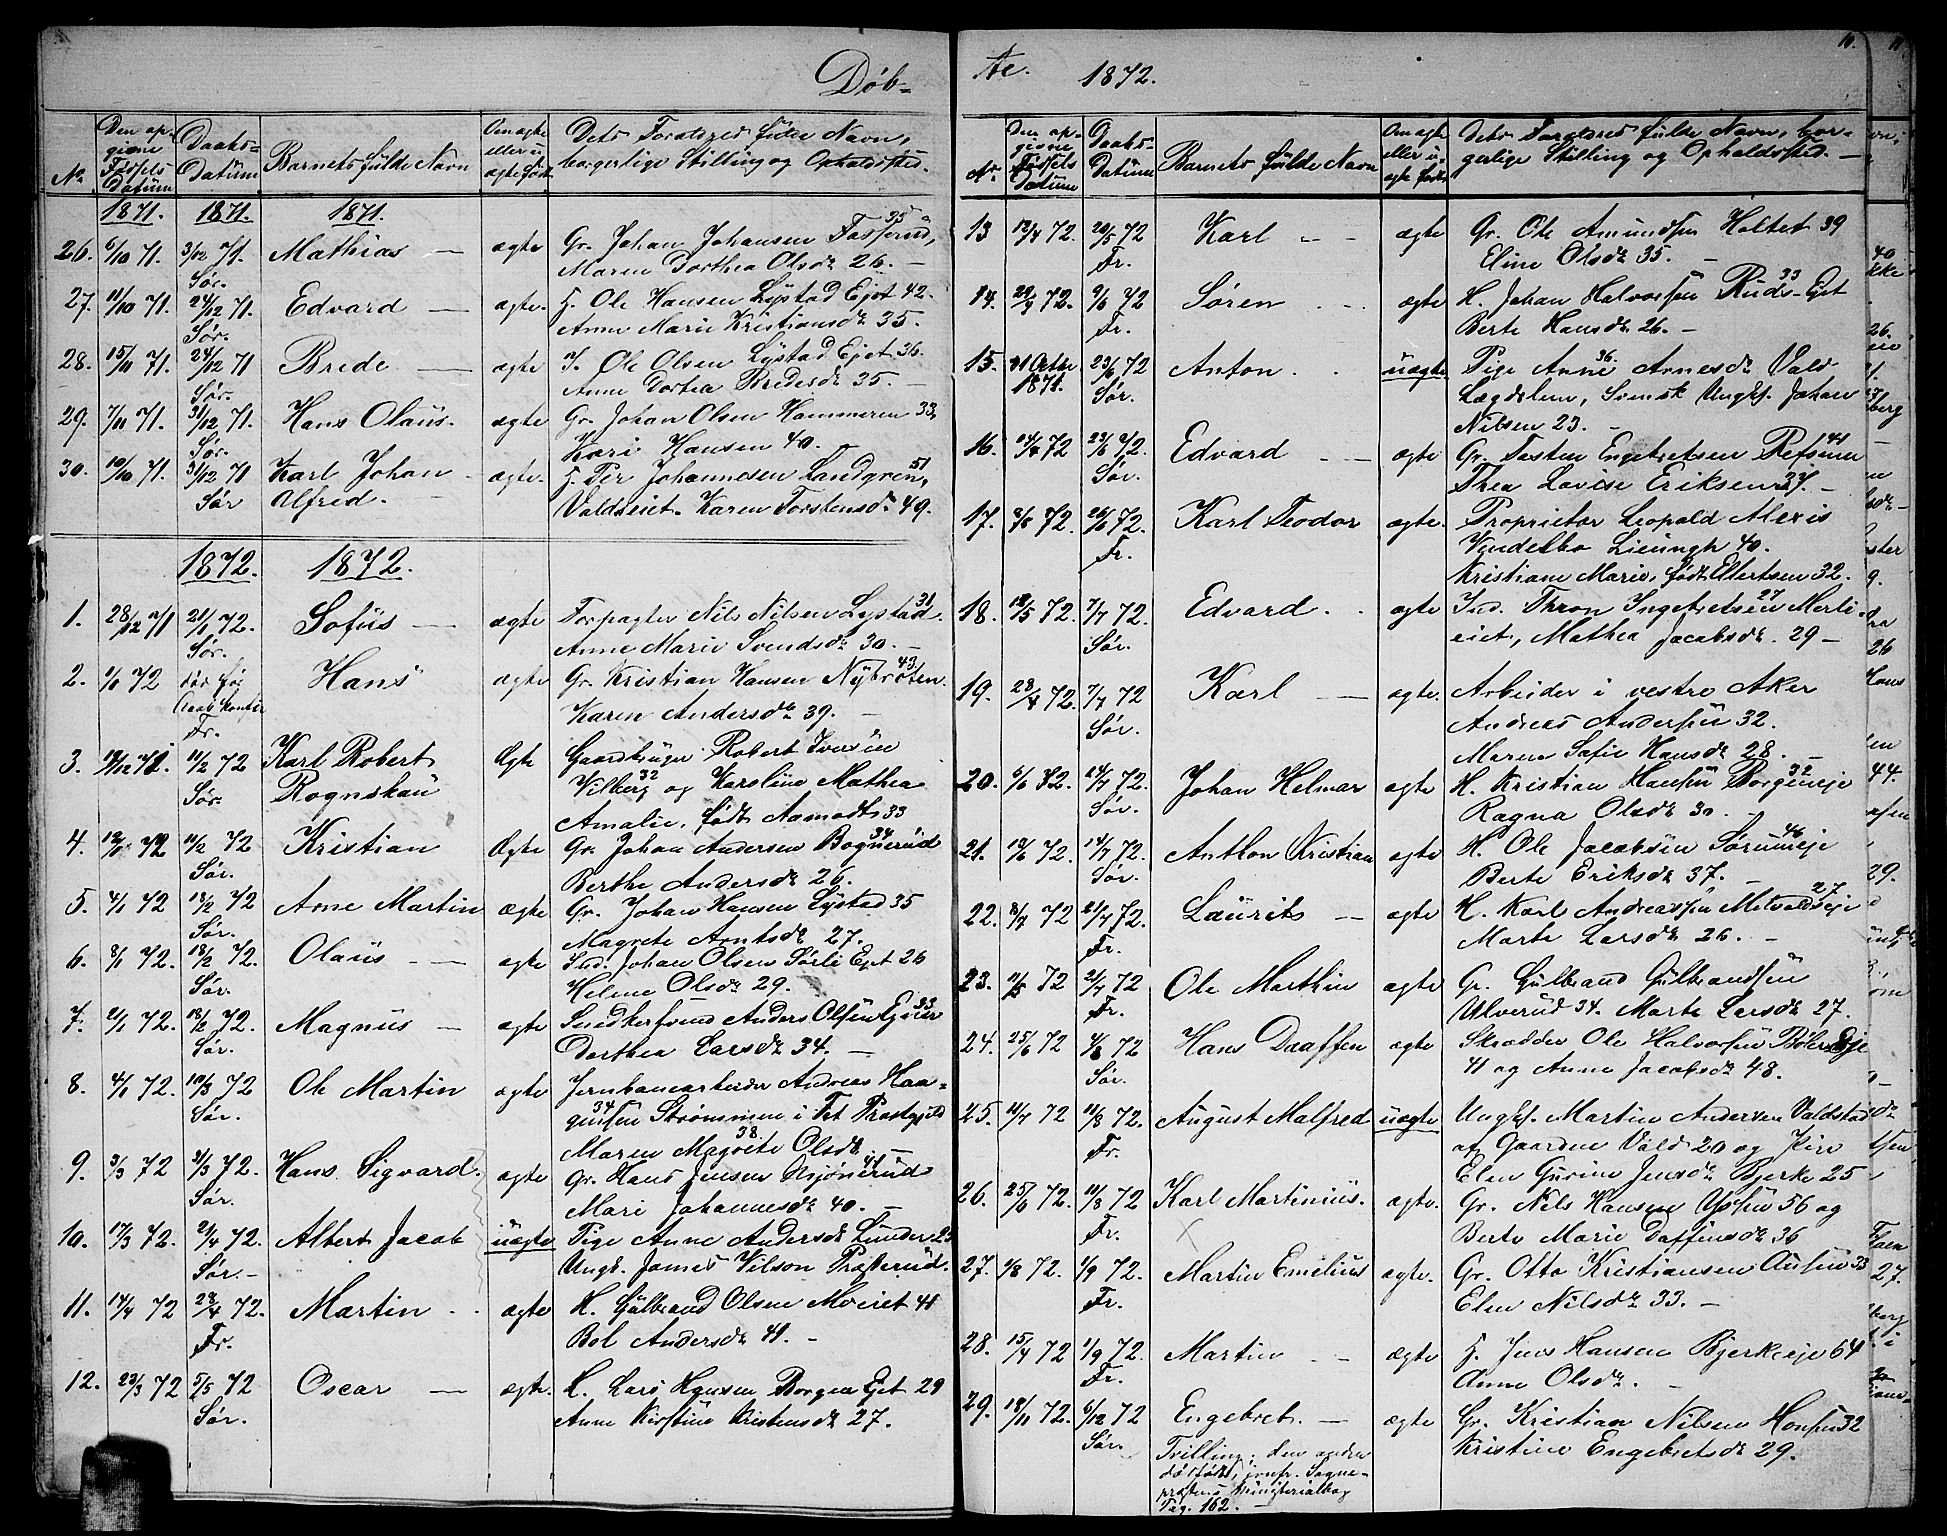 Døb-
No
Den op-
givne
Fødsels
Datum
Daabs-
Datum
Barnets fulde Navn
Om ægte
eller u-
ægte født
Dets Forældres fulde Navn,
borgerlige Stilling og Opholdssted.
1871. 1871. 1871.
26. 6/10 71. 3/12 71. Sør. Mathias — ægte Gr. Johan Johansen Fosserud, 35
Maren Dorthea Olsdr 26. —
27. 11/10 71. 24/12 71. Sør. Edvard — ægte. H. Ole Hansen Lystad Ejet 42.
Anne Marie Kristiansdr 35.
28. 15/11 71. 24/12 71 Sør. Brede — ægte I. Ole Olsen Lystad Ejet 36.
Anne Dortea Bredesdr 35. —
29. 7/11 71. 31/12 71. Sør. Hans Olaus. ægte Gr. Johan Olsen Hammeren 33,
Kari Hansen 40.
30. 10/10 71. 31/12 71 Sør Karl Johan ægte. H. Per Johannesen Landgren, 51
Alfred. — Valdseiet. Karen Torstensdr 49.
1872. 1872.
1. 28/12 71 21/1 72. Sør. Sofus — ægte Forpagter Nils Nilsen Lystad 31
Anne Marie Svendsdr 30. —
2. 1/1 72 Fr. Hans ægte Gr. Kristian Hansen Nybrøten 43.
Karen Andersdr 39. —
3. 11/2 72 Sør. Karl Robert Ægte Gaardbruger Robert Iversen
Rognskau Vilberg 32 og Karoline Mathea
Amalie, født Aamodt 33
4. 72 11/2 72 Sør. Kristian Ægte Gr. Johan Andersen Bognerud 34
Berthe Andersdr 26.
5. 4/1 72 18/2 72 Sør. Arne Martin ægte Gr. Johan Hansen Lystad 35
Magrete Arntsdr 27.
6. 8/1 72. 18/2 72. Sør. Olaus — ægte Ind. Johan Olsen Sørli Ejet 26
Helene Olsdr 29.
7. 21/1 72. 18/2 72. Sør. Magnus — ægte Snedkersvend Anders Olsen 33
Dorthea Larsdr 34. —
8. 4/1 72. 10/3 72 Sør. Ole Martin ægte Jernbanearbeider Andreas Haa-
gensen 34 Strømmen i Fet Præstegjeld
Maren Magrete 38 Olsdr —
9. 3/3 72 31/3 72. Sør. Hans Sigvard. ægte Gr. Hans Jensen
Mari Johannesdr 40. —
10. 17/3 72. 21/4 72. Sør. — Albert Jacob uægte Pige Anne Andersdr Lunder 23
Ungk. James Vilson Præsterud.
11. 14/4 72 28/4 72. Fr. Martin . . ægte H. Gulbrand Olsen Moeiet 41
Bol Andersdr 41. —
12. 23/3 72 5/5 72 Sør. Oscar — ægte. H. Lars Hansen Borgen Ejet 29
Anne Kirstine Kristensdr 27.
te. 1872. 10.
No
Den op-
givne
Fødsels
Datum
Daabs-
Datum
Barnets fulde Navn
Om ægte
eller u-
ægte født
Dets Forældres fulde Navn, bor-
gerlige Stilling og Opholdssted. —
13 12/4 72. 20/5 72 Fr. Karl — — ægte Gr. Ole Amundsen Holtet 39
Eline Olsdr 35. —
14. 72. 9/6 72 Fr. Søren . . ægte H. Johan Halvorsen Ruds-Ejet 33
Berte Hansdr 26. —
15. 1871. 23/6 72 Sør. Anton. . uægte Pige Anne 36. Arnesdr Vald
Lægdslem, Svensk Ungk. Johan
Nilsen 23. —
16. 14/4 72 23/6 72. Sør. Edvard — — ægte Gr. Tosten Engebretsen Refsum 41
Thea Lovise Eriksen —
17. 72. 26/6 72. Fr. Karl Teodor ægte. Proprietær Leopold Alexis
Lieungh 40.
Kristiane Marie, født Ellertsen 32.
18. 12/5 72 7/7 72. Sør. Edvard . . ægte Ind. Thron Ingebretsen 27 Merli-
eiet, Mathea Jacobsdr 29 —
19. 28/4 72. 7/7 72 Sør. Karl — ægte. Arbeider i vestre Aker
Andreas Andersen 32.
Maren Sofie Hansdr 28. —
20. 6/6 72. 14/7 72. Sør. Johan Helmar ægte H. Kristian Hansen Borgeneje 32
Ragna Olsdr 30. —
21. 12/6 72. 14/7 72. Sør. Anthon Kristian ægte H. Ole Jacobsen Sørumeje 46
Berte Eriksdr 37. —
22. 8/7 72 21/7 72. Fr. Laurits — ægte H. Karl Andreassen Melvoldseje 27
Marte Larsdr 26. —
23. 72 21/7 72 Fr. Ole Marthin ægte Gr. Gulbrand Gulbrandsen
Ulverud 34. Marte Larsdr 27.
24. 25/6 72 4/8 72 Sør. Hans Daaffen ægte Skrædder Ole Halvorsen Bølers Eje
41 og Anne Jacobsdr 48.
25. 11/7 72 11/8 72. Fr. August Malfred uægte Ungk. Martin Andersen Valdstad
af Gaarden Vald 20 og Pige
Elen Gurine Jensdr Bjerke 25
26. 25/6 72. 11/8 72 Fr. Karl Martinius. ægte. Gr. Nils Hansen 56 og
Berte Marie Daffinsdr 36
27. 1/8 72. 1/9 72. Fr. Martin Emelius ægte. Gr. Otto Kristiansen Ausen 33
Elen Nilsdr 33. —
28. 15/7 72 1/9 72. Fr. Martin — ægte H. Jens Hansen Bjerkeeje 64
Anne Olsdr. —
29. 18/11 72. 6/12 72 Sør. Engebret. — ægte Gr. Kristian Nilsen 32
Kristine Engebretsdr 29.
Tvilling; den anden
dødfødt, jvnfr. Sogne-
præstens Ministerialbog
Pag. 162. —